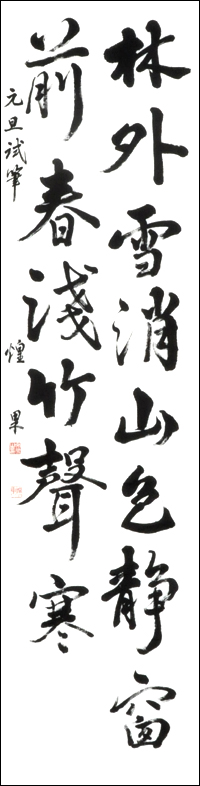 林外雪消山色静窗
前春浅竹聲寒
元旦试筆 煌果